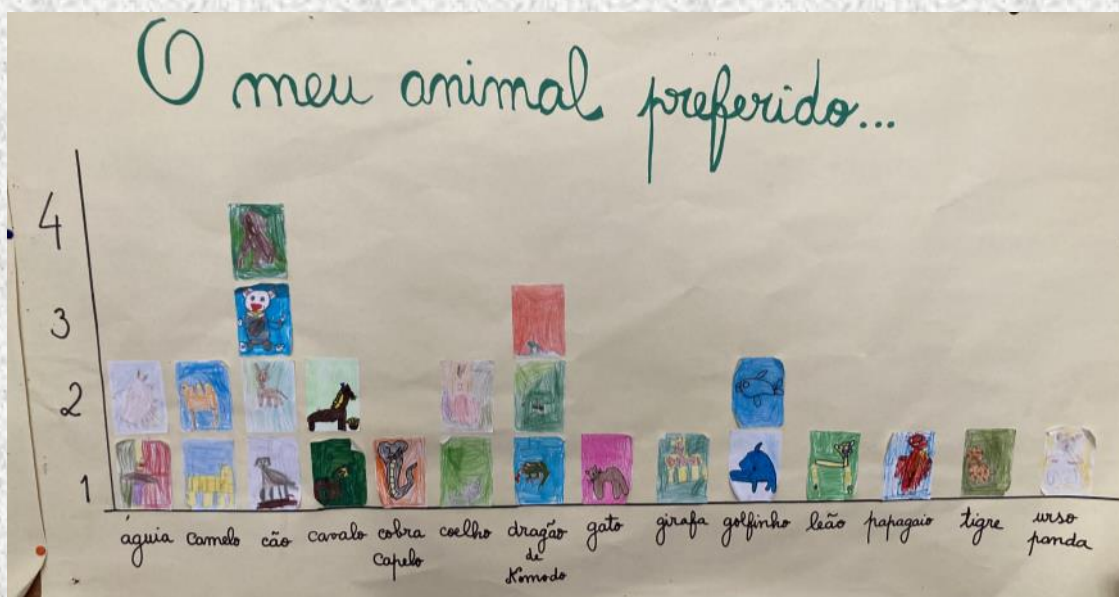 O meu animal preferido...
4
3
2
1
águia camelo cão cavalo cobra capelo coelho dragão de Komodo gato girafa golfinho leão papagaio tigre urso panda